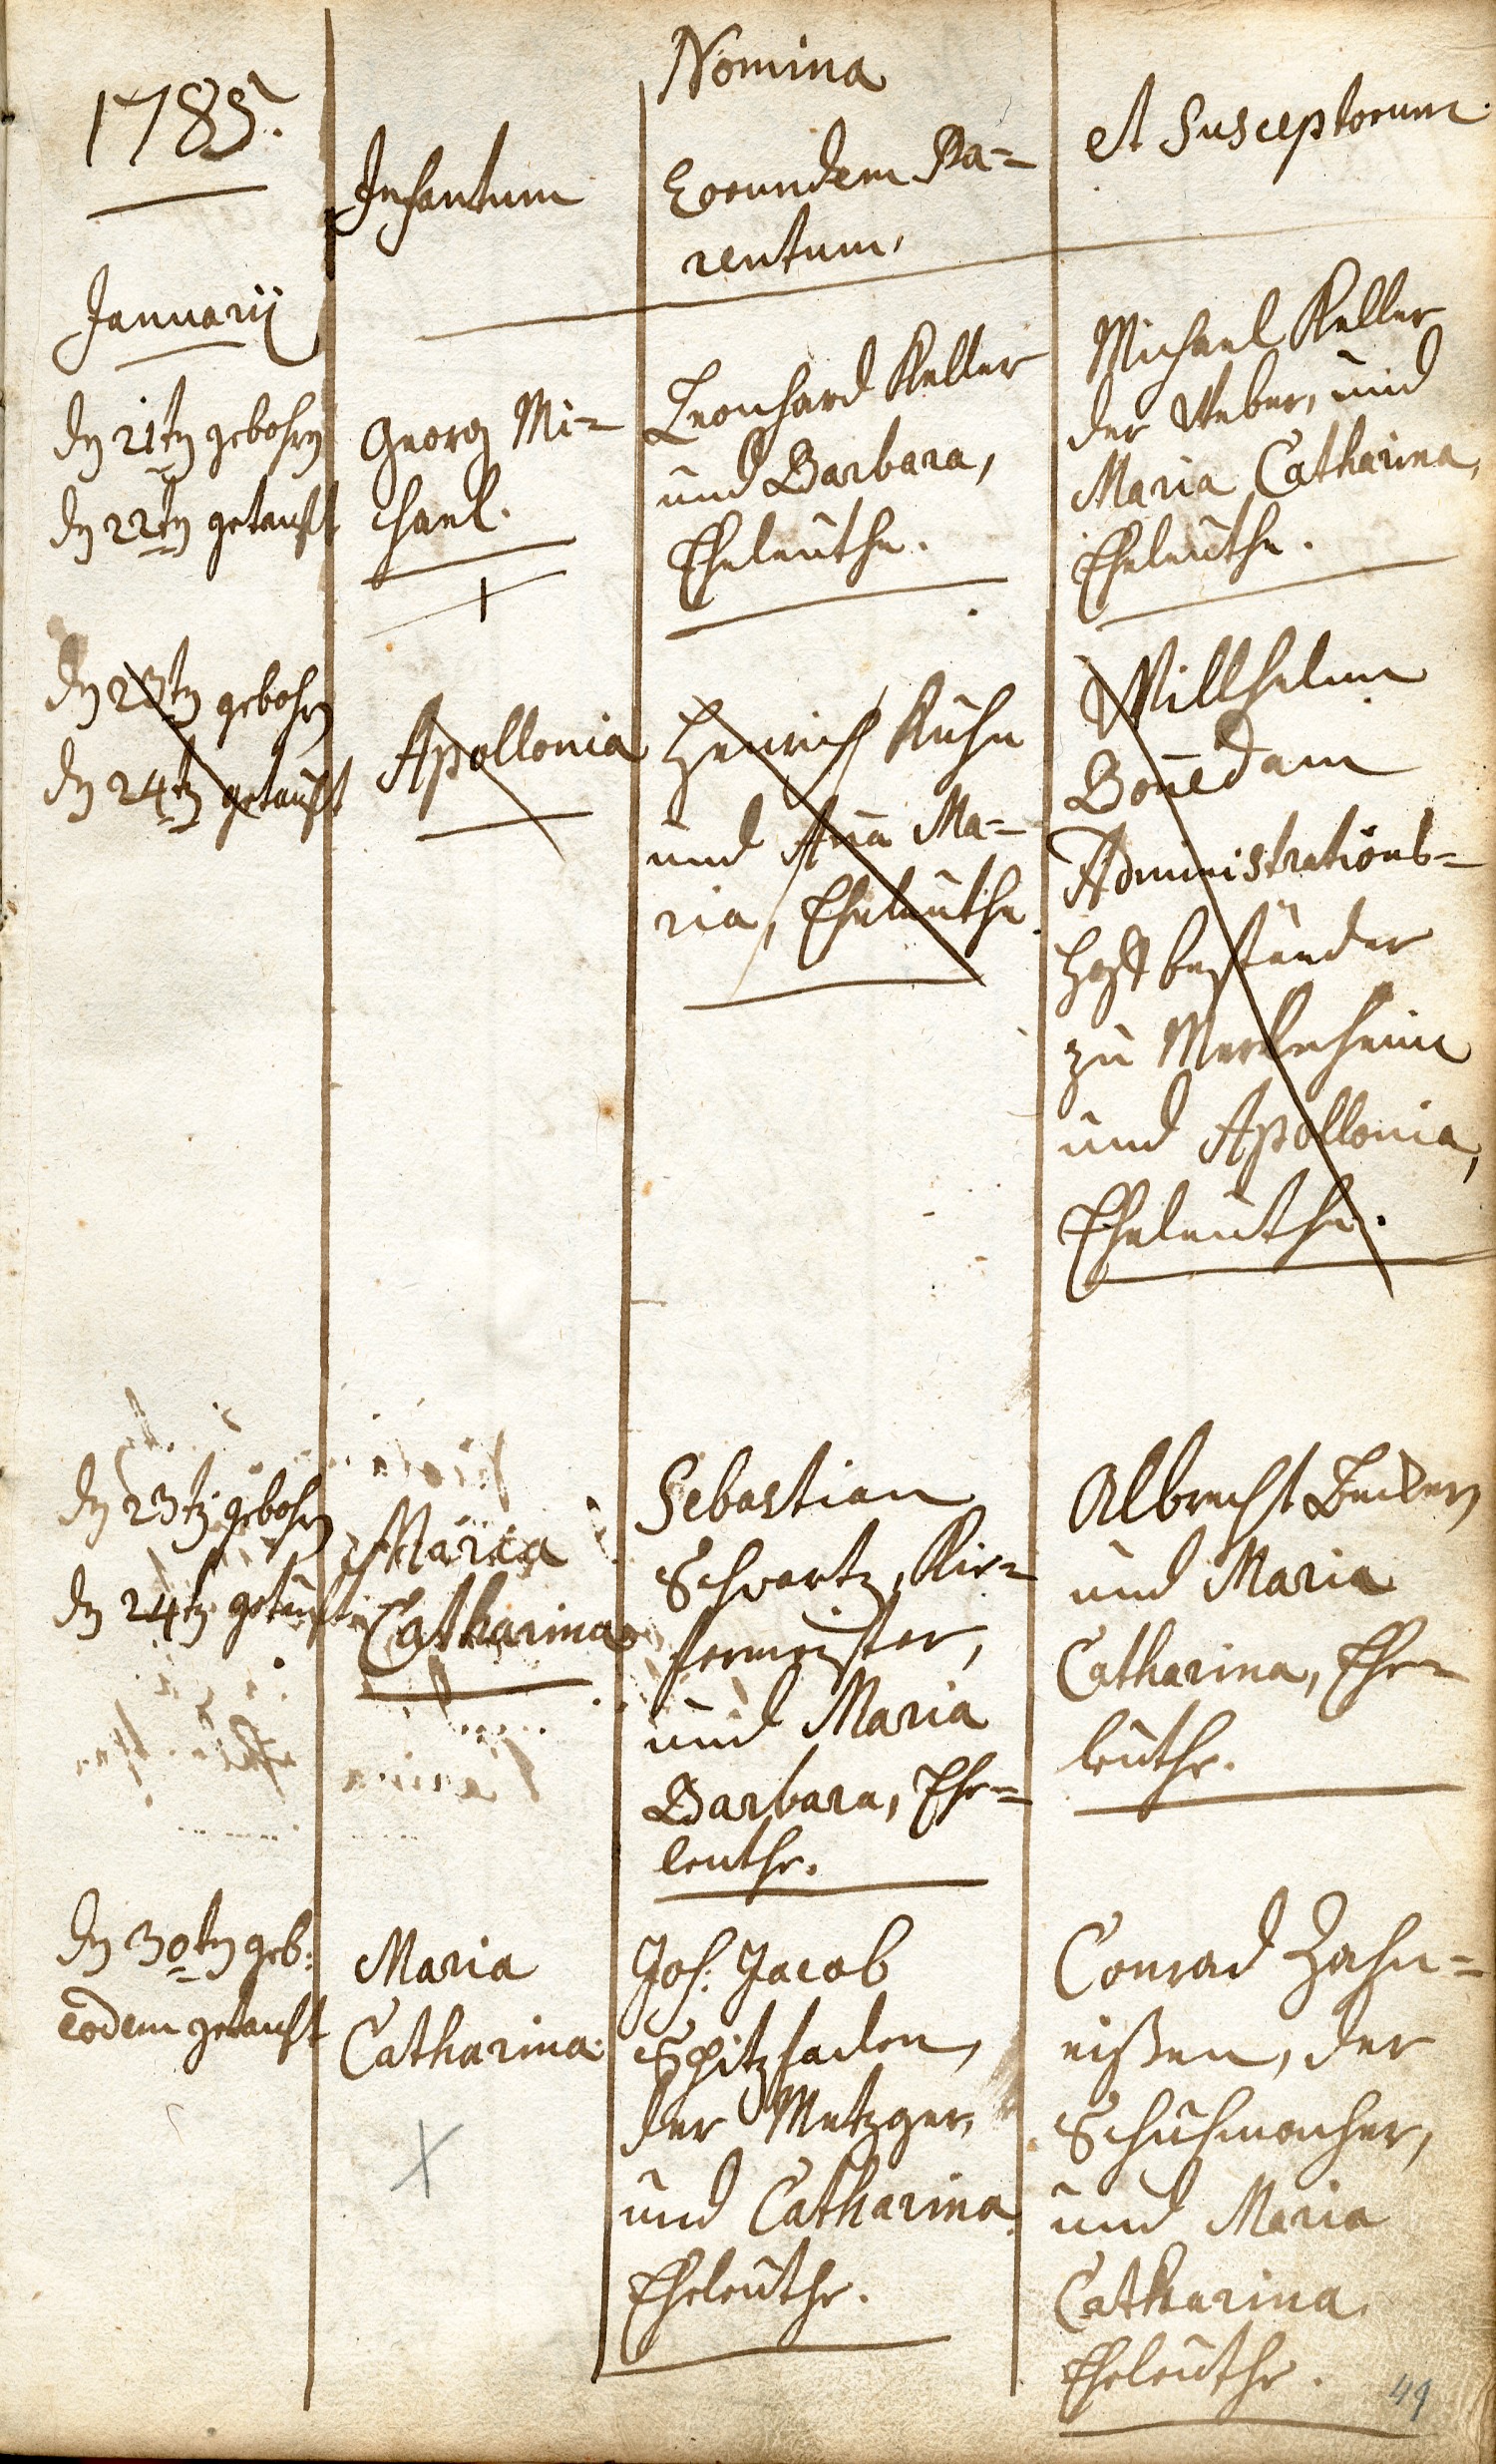 1785.
Nomina
Infantum
Eorundem Pa=
rentum,
et Susceptorum.
Januarij
dn 21tn gebohrn
dn 22tn getauft
Georg Mi=
chael.
Leonhard Keller
und Barbara,
Eheleuthe.
Michael Keller
der Weber, und
Maria Catharina,
Eheleuthe.
dn 23tn gebohrn
dn 24tn getauft
Apollonia
Henrich Kuhn
und Aña Ma=
ria, Eheleuthe.
Willhelm
Boñedam
Administrations=
Hoffbeständer
zu Merkesheim
und Apollonia,
Eheleuthe.
dn 23tn gebohrn
dn 24tn getauft
Maria
Catharina
Sebastian
Schwartz, Kie=
fermeister,
und Maria
Barbara, Ehe=
leuthe.
Albrecht Becker,
und Maria
Catharina, Ehe=
leuthe.
dn 30tn geb:
eodem getauft
Maria
Catharina.
Joh: Jacob
Spitzfaden,
der Metzger,
und Catharina
Eheleuthe.
Conrad Zahn=
eißen, der
Schuhmacher,
und Maria
Catharina
Eheleuthe.
49